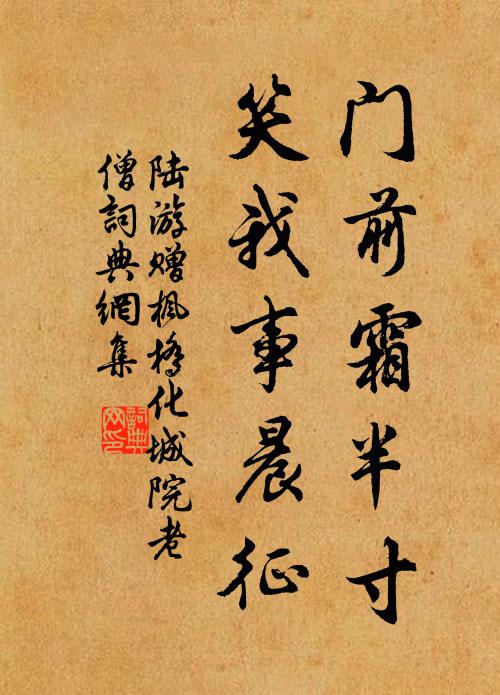 门前霜半寸
笑我事晨征
陆游赠枫桥化城院老
僧詞典網集
詞典
网印